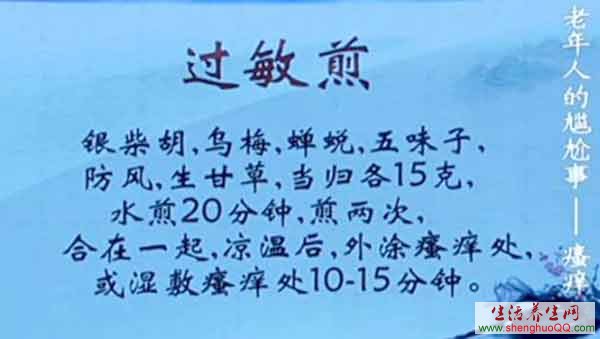 过敏煎
银柴胡,乌梅,蝉蜕,五味子,
防风,生甘草,当归各15克,
水煎20分钟,煎两次,
合在一起,凉温后,外涂瘙痒处,
或湿敷瘙痒处10-15分钟。
老年人的尴尬事——瘙痒
生活养生网
www.shenghuoQQ.com